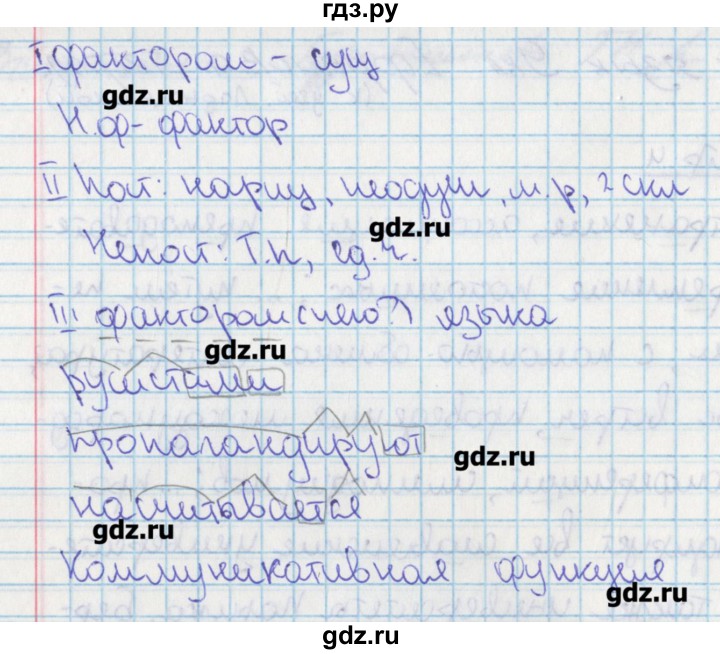 гдз.ру
I фактором - сущ
gdz.ru
Н.ф- фактор
II Пост: нариц, неодуш, м.р, 2 скл
gdz.ru
Непост: Т.п, ед.ч.
III фактором (чего?) языка
gdz.ru
русистами
пропагандируют
gdz.ru
насчитывается
gdz.ru
Коммуникативная функция
gdz.ru
gdz.ru